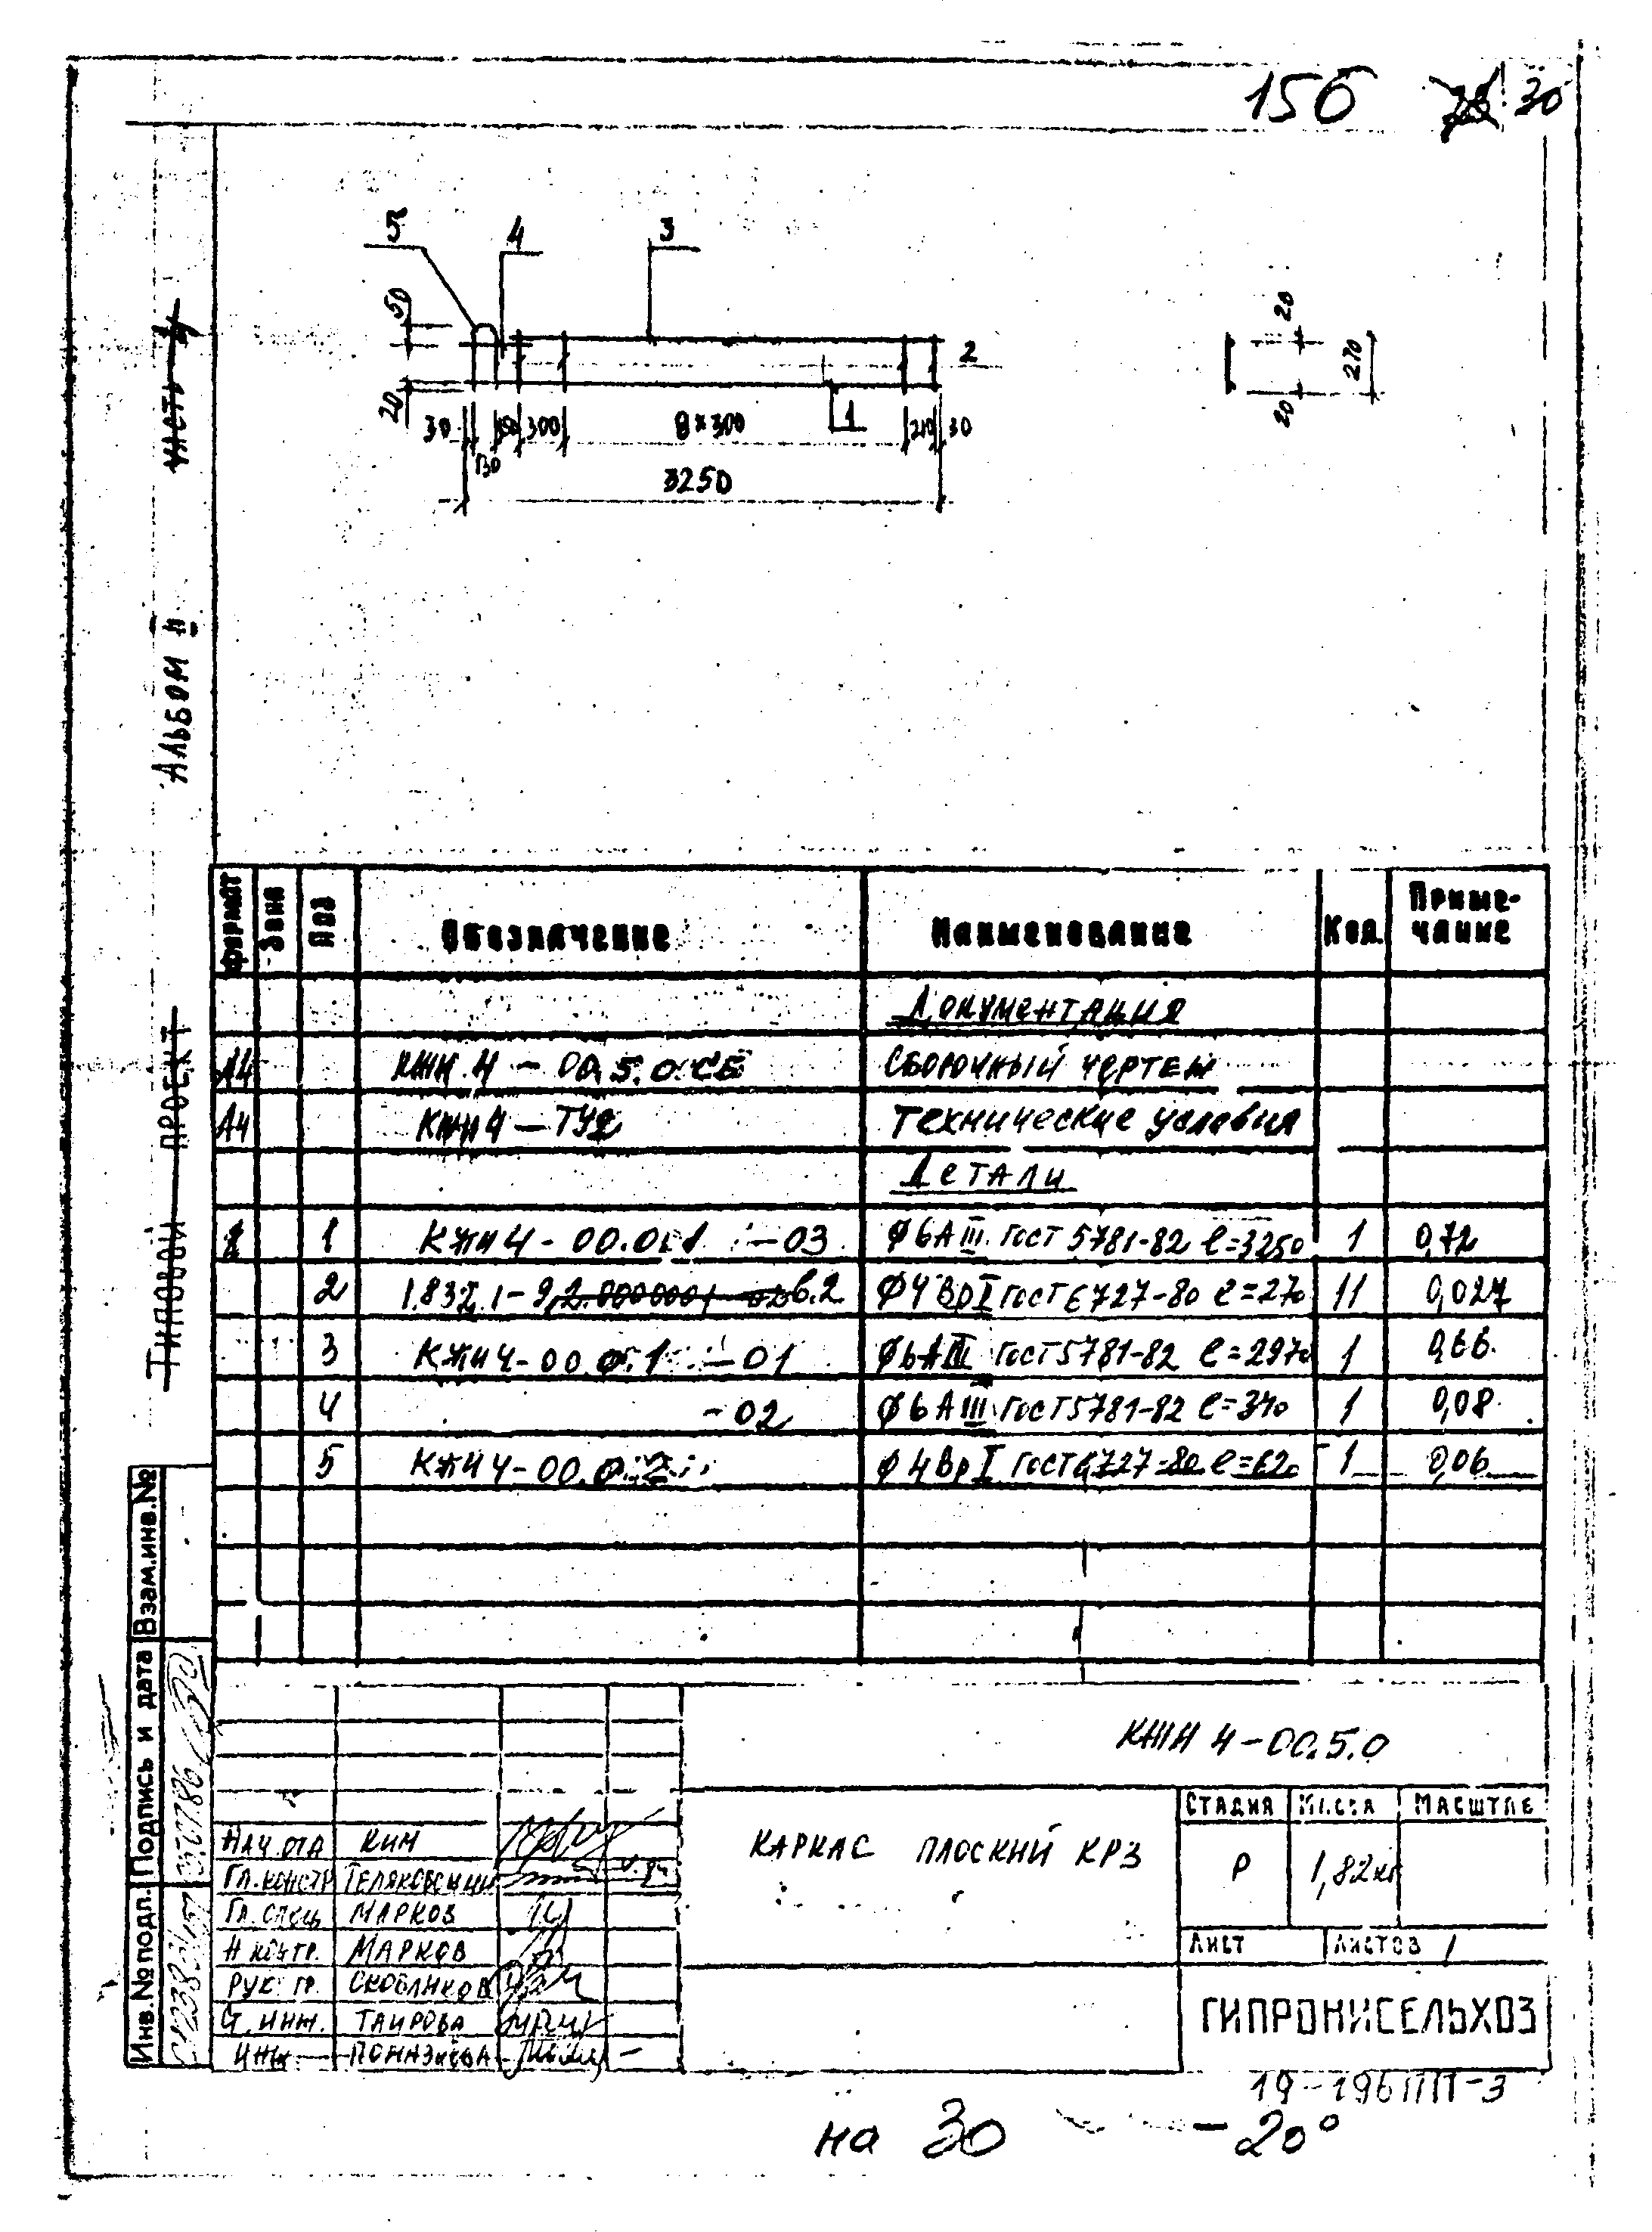 156 30
5 4 3
50
20
2
1
30 130 150 300 8×300 210 30
3250
20
270
20
часть
Альбом II
Типовой проект
Формат Зона Поз Обозначение Наименование Кол. Приме-
чание
Документация
А4 КЖИ 4-00.5.0 СБ Сборочный чертеж
А4 КЖИ 4-ТУ2 Технические условия
Детали
1 КЖИ 4-00.0.1 -03 ϕ6АIII ГОСТ 5781-82 ℓ=3250 1 0,72
2 1.832.1-9, 2.0000001-02 в.2 ϕ4ВрI ГОСТ 6727-80 ℓ=270 11 0,027
3 КЖИ 4-00.0.1 -01 ϕ6АIII ГОСТ 5781-82 ℓ=2970 1 0,66
4 -02 ϕ6АIII ГОСТ 5781-82 ℓ=340 1 0,08
5 КЖИ 4-00.0.2 ϕ4ВрI ГОСТ 6727-80 ℓ=620 1 0,06
Взам.инв.№
Подпись и дата
Инв.№ подп.
КЖИ 4-00.5.0
Нач.отд Ким
Гл.констр Теляковский
Гл.спец Марков
Н контр. Марков
Рук. гр. Скобликов
Ст. инж. Таирова
Инж
Каркас плоский КР3
Стадия Масса Масштаб
Р 1,82кг
Лист Листов 1
ГИПРОНИСЕЛЬХОЗ
19-196ПП-3
на 30 -20°